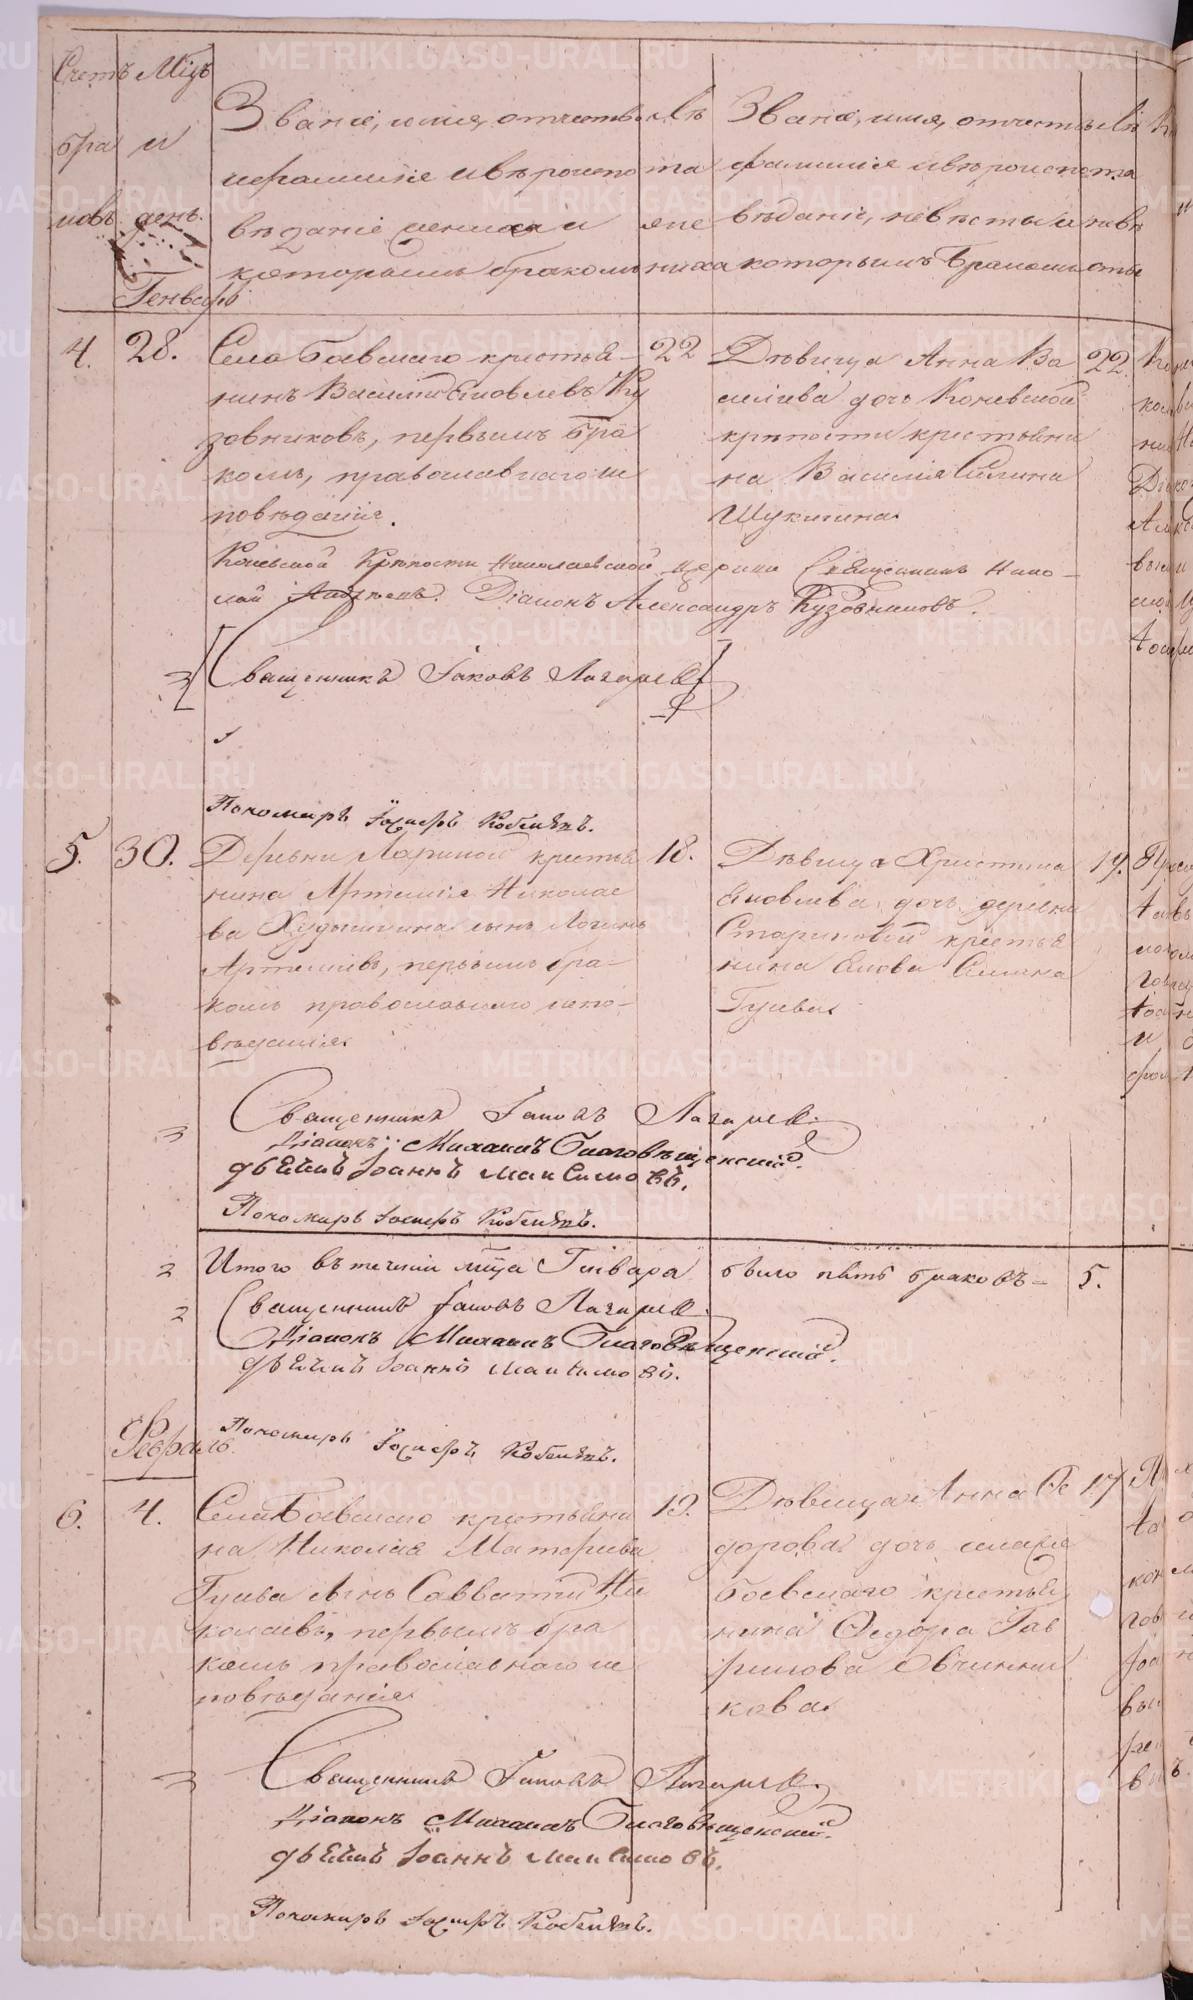 Счетъ Мцъ
бра и
ковъ. день.
Званіе, имя, отчество
и фамилія и вѣроиспо
вѣданіе жениха и
которымъ бракомъ
Лѣ
та
же
ниха
Званіе, имя, отчество
фамилія и вѣроиспо
вѣданіе, невѣсты и
которымъ бракомъ
Лѣ
та
невѣ
сты
Генварь
4. 28.
Села Боевскаго крестья-
нинъ Василій Яковлевъ Ку
зовниковъ, первымъ бра
комъ, православнаго ис
повѣданія.
22
Дѣвица Анна Ва
силіева дочь Коневской
крѣпости крестьяни
на Василія Силина
Щукинина.
22.
Коневской Крѣпости Николаевской церкви Священникъ Нико-
лай. Діаконъ Александръ Кузовниковъ.
Священникъ Іаковъ Лагаревъ
Пономарь Іосифъ Кобелевъ.
5. 30.
Деревни Лариной крестья
нина Артемія Николае
ва Худышкина сынъ Логинъ
Артеміевъ, первымъ бра-
комъ православнаго испо-
вѣданія.
18.
Дѣвица Христина
Яковлева дочь деревни
Стариковой крестья
нина Якова Силина
Гусева.
19.
Священникъ Іаковъ Лагаревъ.
Діаконъ Михаилъ Благовѣщенскій.
дьячекъ Іоаннъ Максимовъ.
Пономарь Іосифъ Кобелевъ.
Итого въ теченіи мца Генваря было пять браковъ - 5.
Священникъ Іаковъ Лагаревъ.
Діаконъ Михаилъ Благовѣщенскій.
дьячекъ Іоаннъ Максимовъ.
Пономарь Іосифъ Кобелевъ.
Февраль.
6. 4.
Села Боевскаго крестьяни
на Николая Матфеева
Гусева сынъ Савватій Ни
колаевъ, первымъ бра
комъ православнаго ис
повѣданія.
19.
Дѣвица Анна Ѳе
дорова дочь села
Боевскаго крестья
нина Ѳедора Гав
рилова Овчинни
кова.
17
Священникъ Іаковъ Лагаревъ.
Діаконъ Михаилъ Благовѣщенскій.
дьячекъ Іоаннъ Максимовъ.
Пономарь Іосифъ Кобелевъ.
METRIKI.GASO-URAL.RU